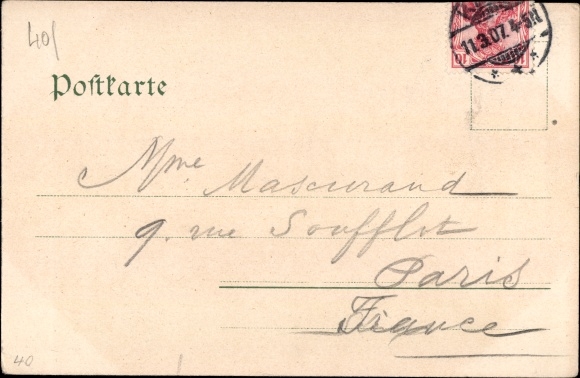 40/
11.3.07. 4-5N
10 10
Postkarte
Mme Mascurand
9. rue Soufflot
Paris
France
40